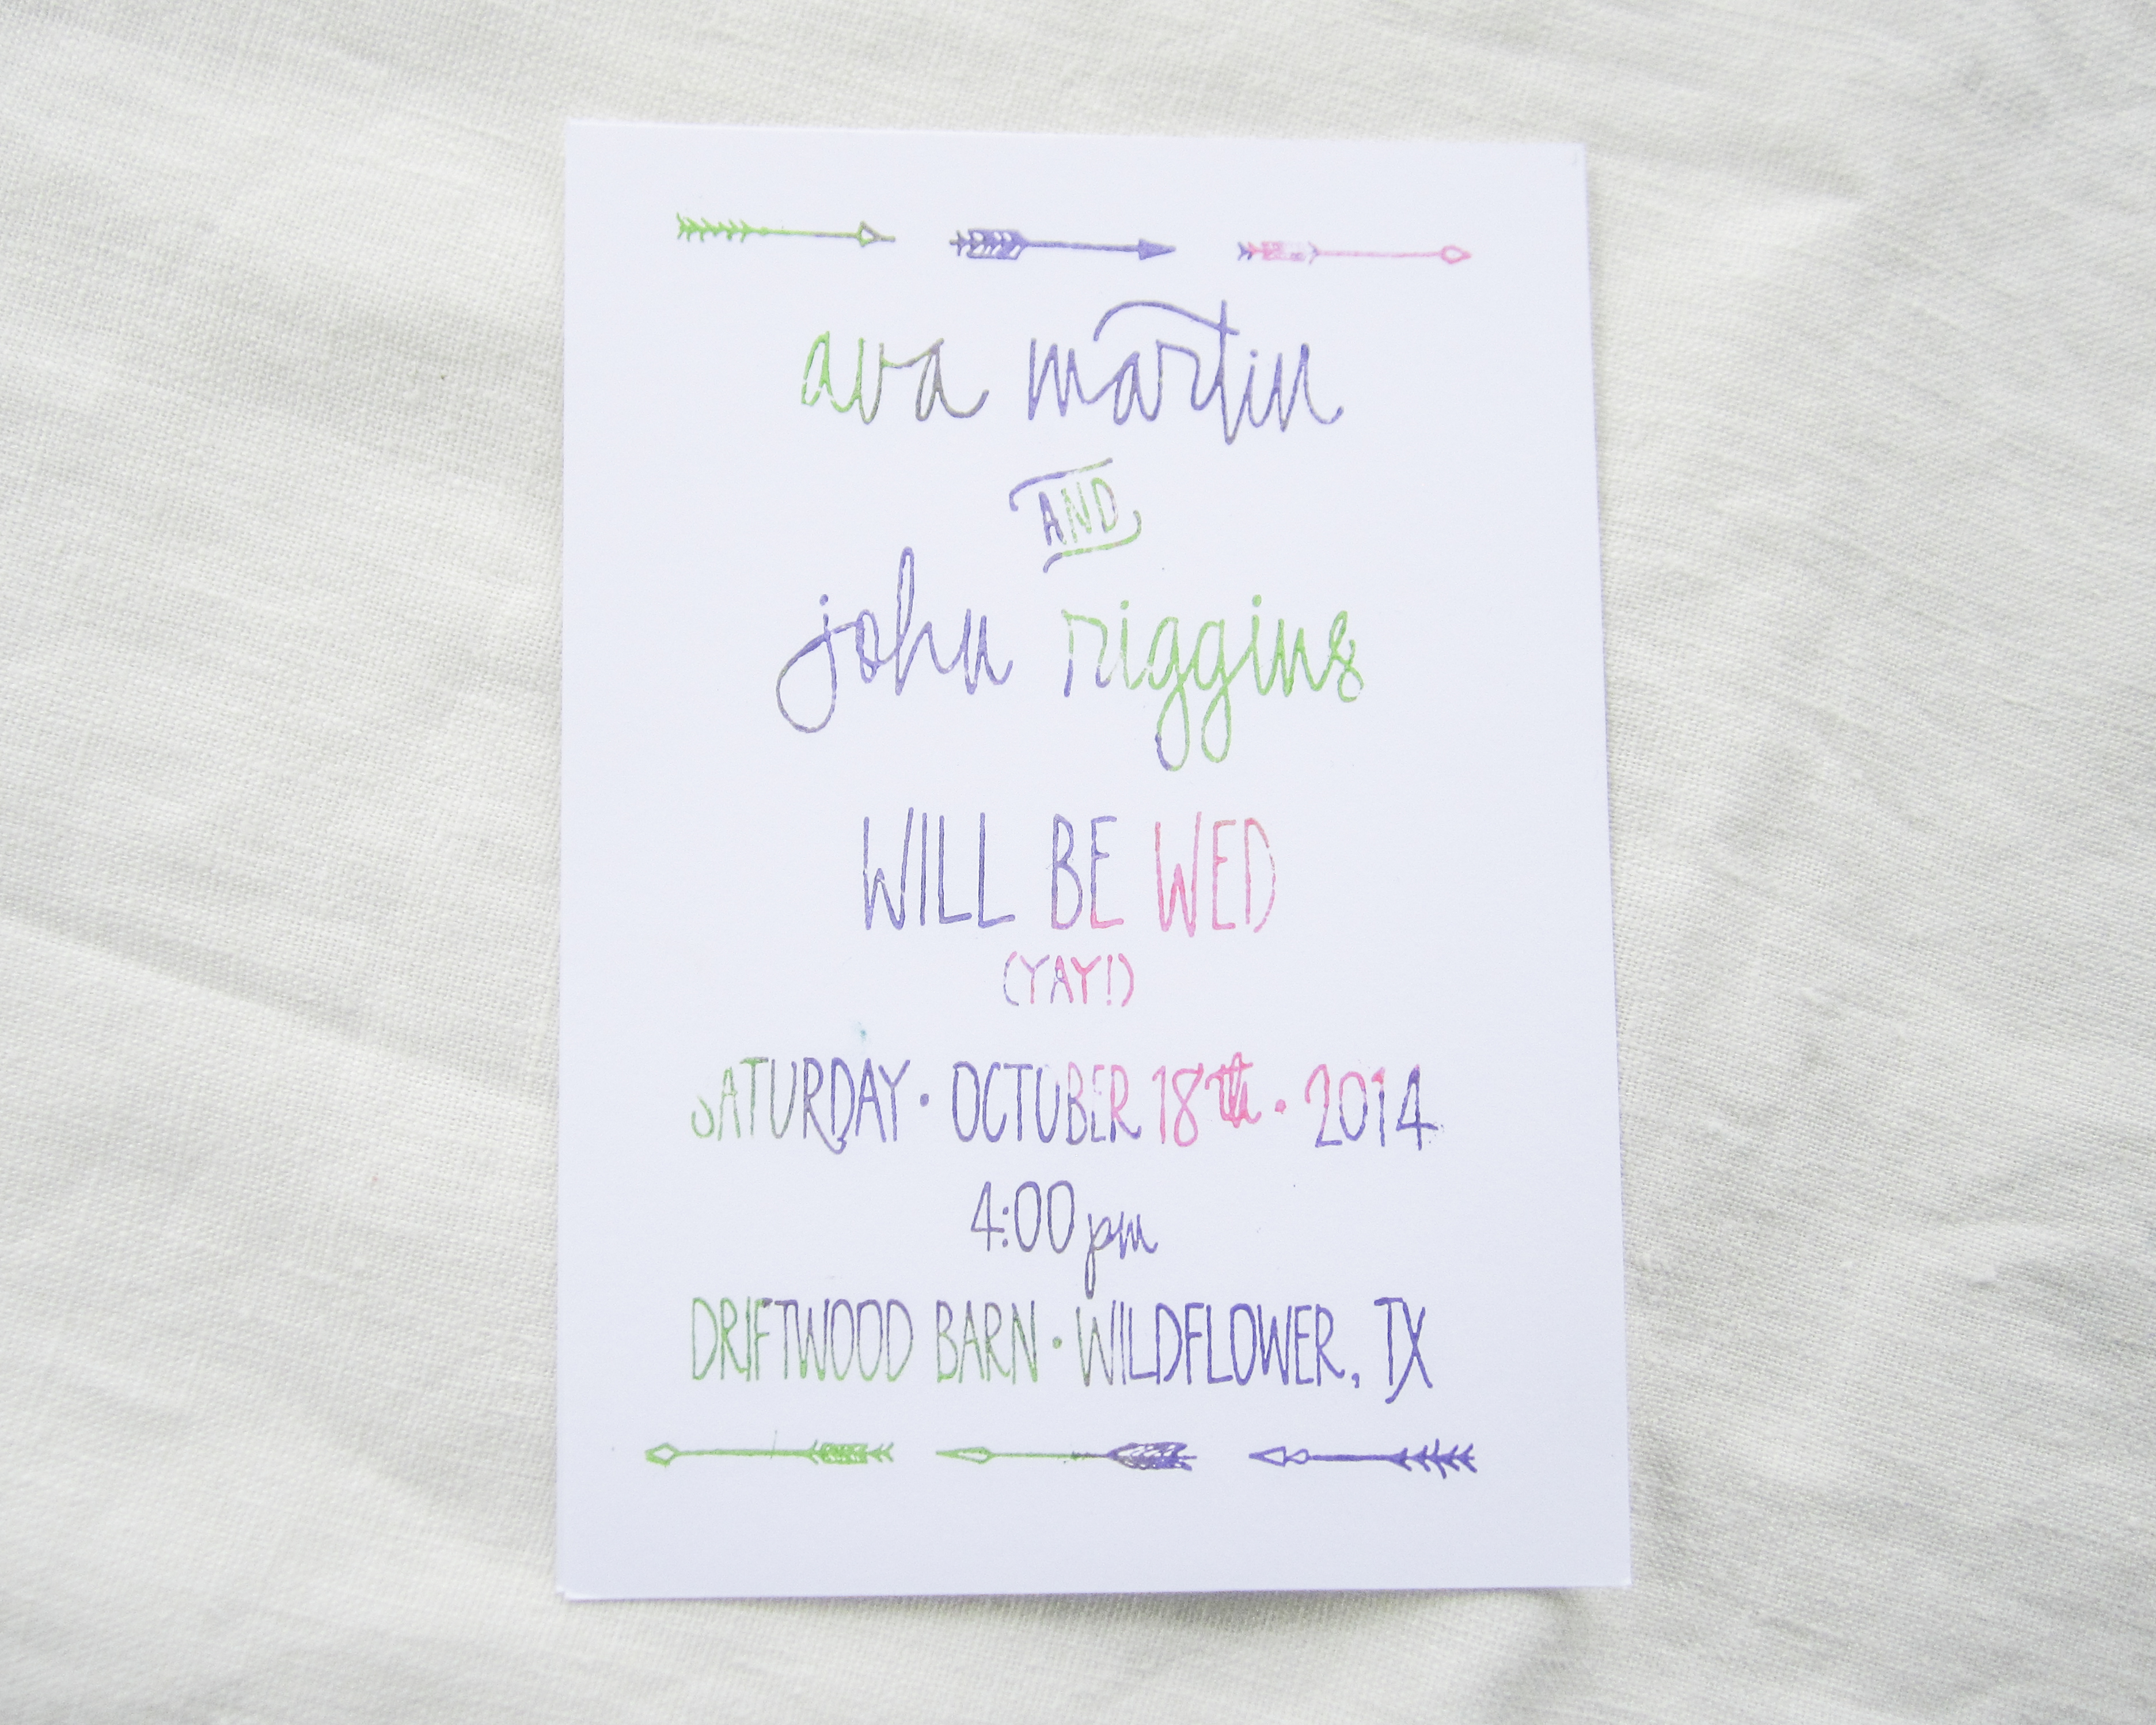 ava martin
AND
john riggins
WILL BE WED
(YAY!)
SATURDAY • OCTOBER 18th • 2014
4:00 pm
DRIFTWOOD BARN • WILDFLOWER, TX